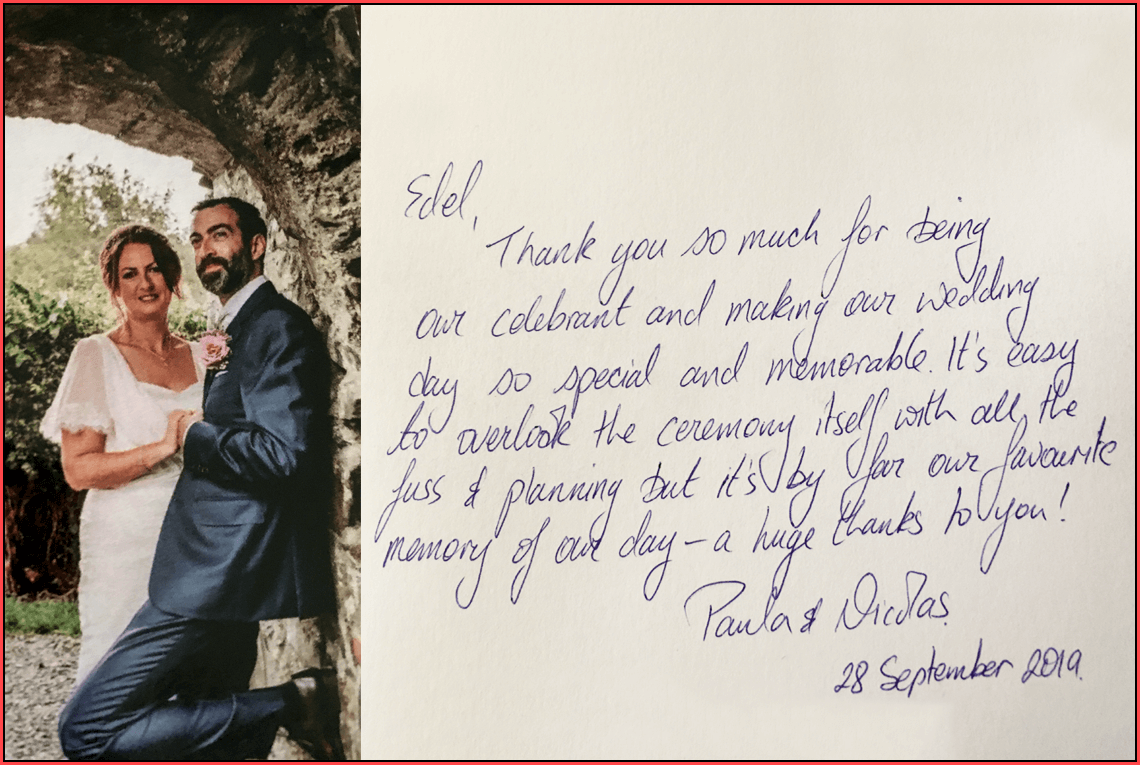 Edel,
Thank you so much for being
our celebrant and making our wedding
day so special and memorable. It's easy
to overlook the ceremony itself with all the
fuss & planning but it's by far our favourite
memory of our day – a huge thanks to you!
Paula & Nicolas.
28 September 2019.